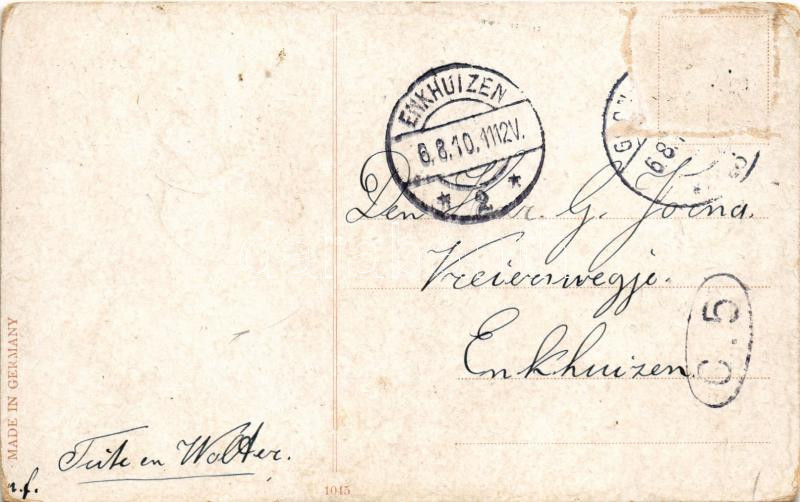 ENKHUIZEN
6.8.10.1112V.
* 2 *
6.8.
Den Heer. G. Jorna.
Vreierswegje.
Enkhuizen
C.5
MADE IN GERMANY
Tute en Wolter.
1045